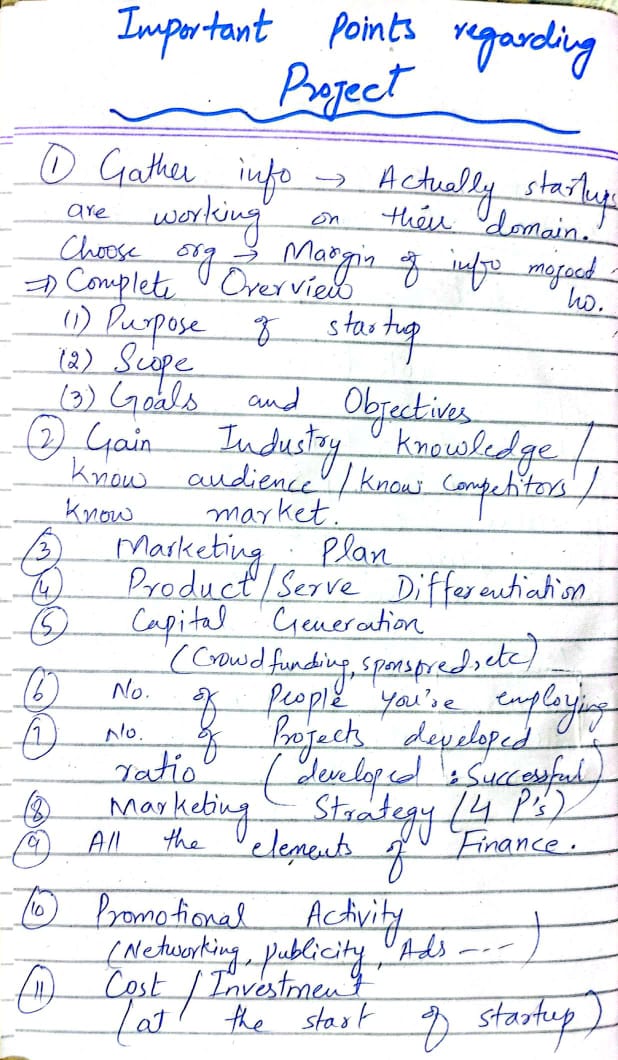 Important Points regarding
Project
① Gather info → Actually startups
are working on their domain.
Choose org → Margin of info mojood
ho.
⇒ Complete Overview
(1) Purpose of startup
(2) Scope
(3) Goals and Objectives
② Gain Industry Knowledge /
Know audience / Know Competitors /
Know market.
③ Marketing Plan
④ Product/Serve Differentiation
⑤ Capital Generation
(Crowd funding, sponspred, etc)
⑥ No. of People you're employing
⑦ No. of Projects developed
ratio (developed : Successful)
⑧ Marketing Strategy (4 P's)
⑨ All the elements of Finance.
⑩ Promotional Activity
(Networking, publicity, Ads ---)
⑪ Cost / Investment
(at the start of startup)